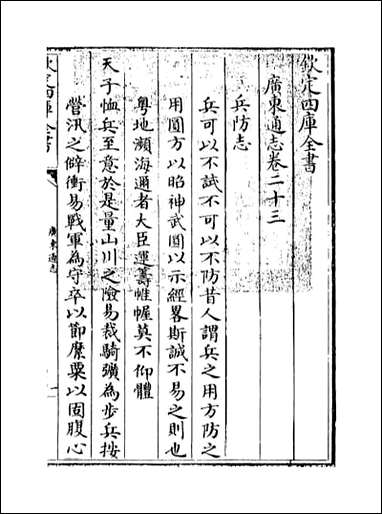 欽定四庫全書
廣東通志卷二十三
兵防志
兵可以不試不可以不防昔人謂兵之用方防之
用圓方以昭神武圓以示經畧斯誠不易之則也
粵地瀕海邇者大臣運籌帷幄莫不仰體
天子恤兵至意於是量山川之險易裁騎獷為步兵按
營汛之僻衝易戰軍為守卒以節縻粟以固腹心
欽定四庫全書
廣東通志
一